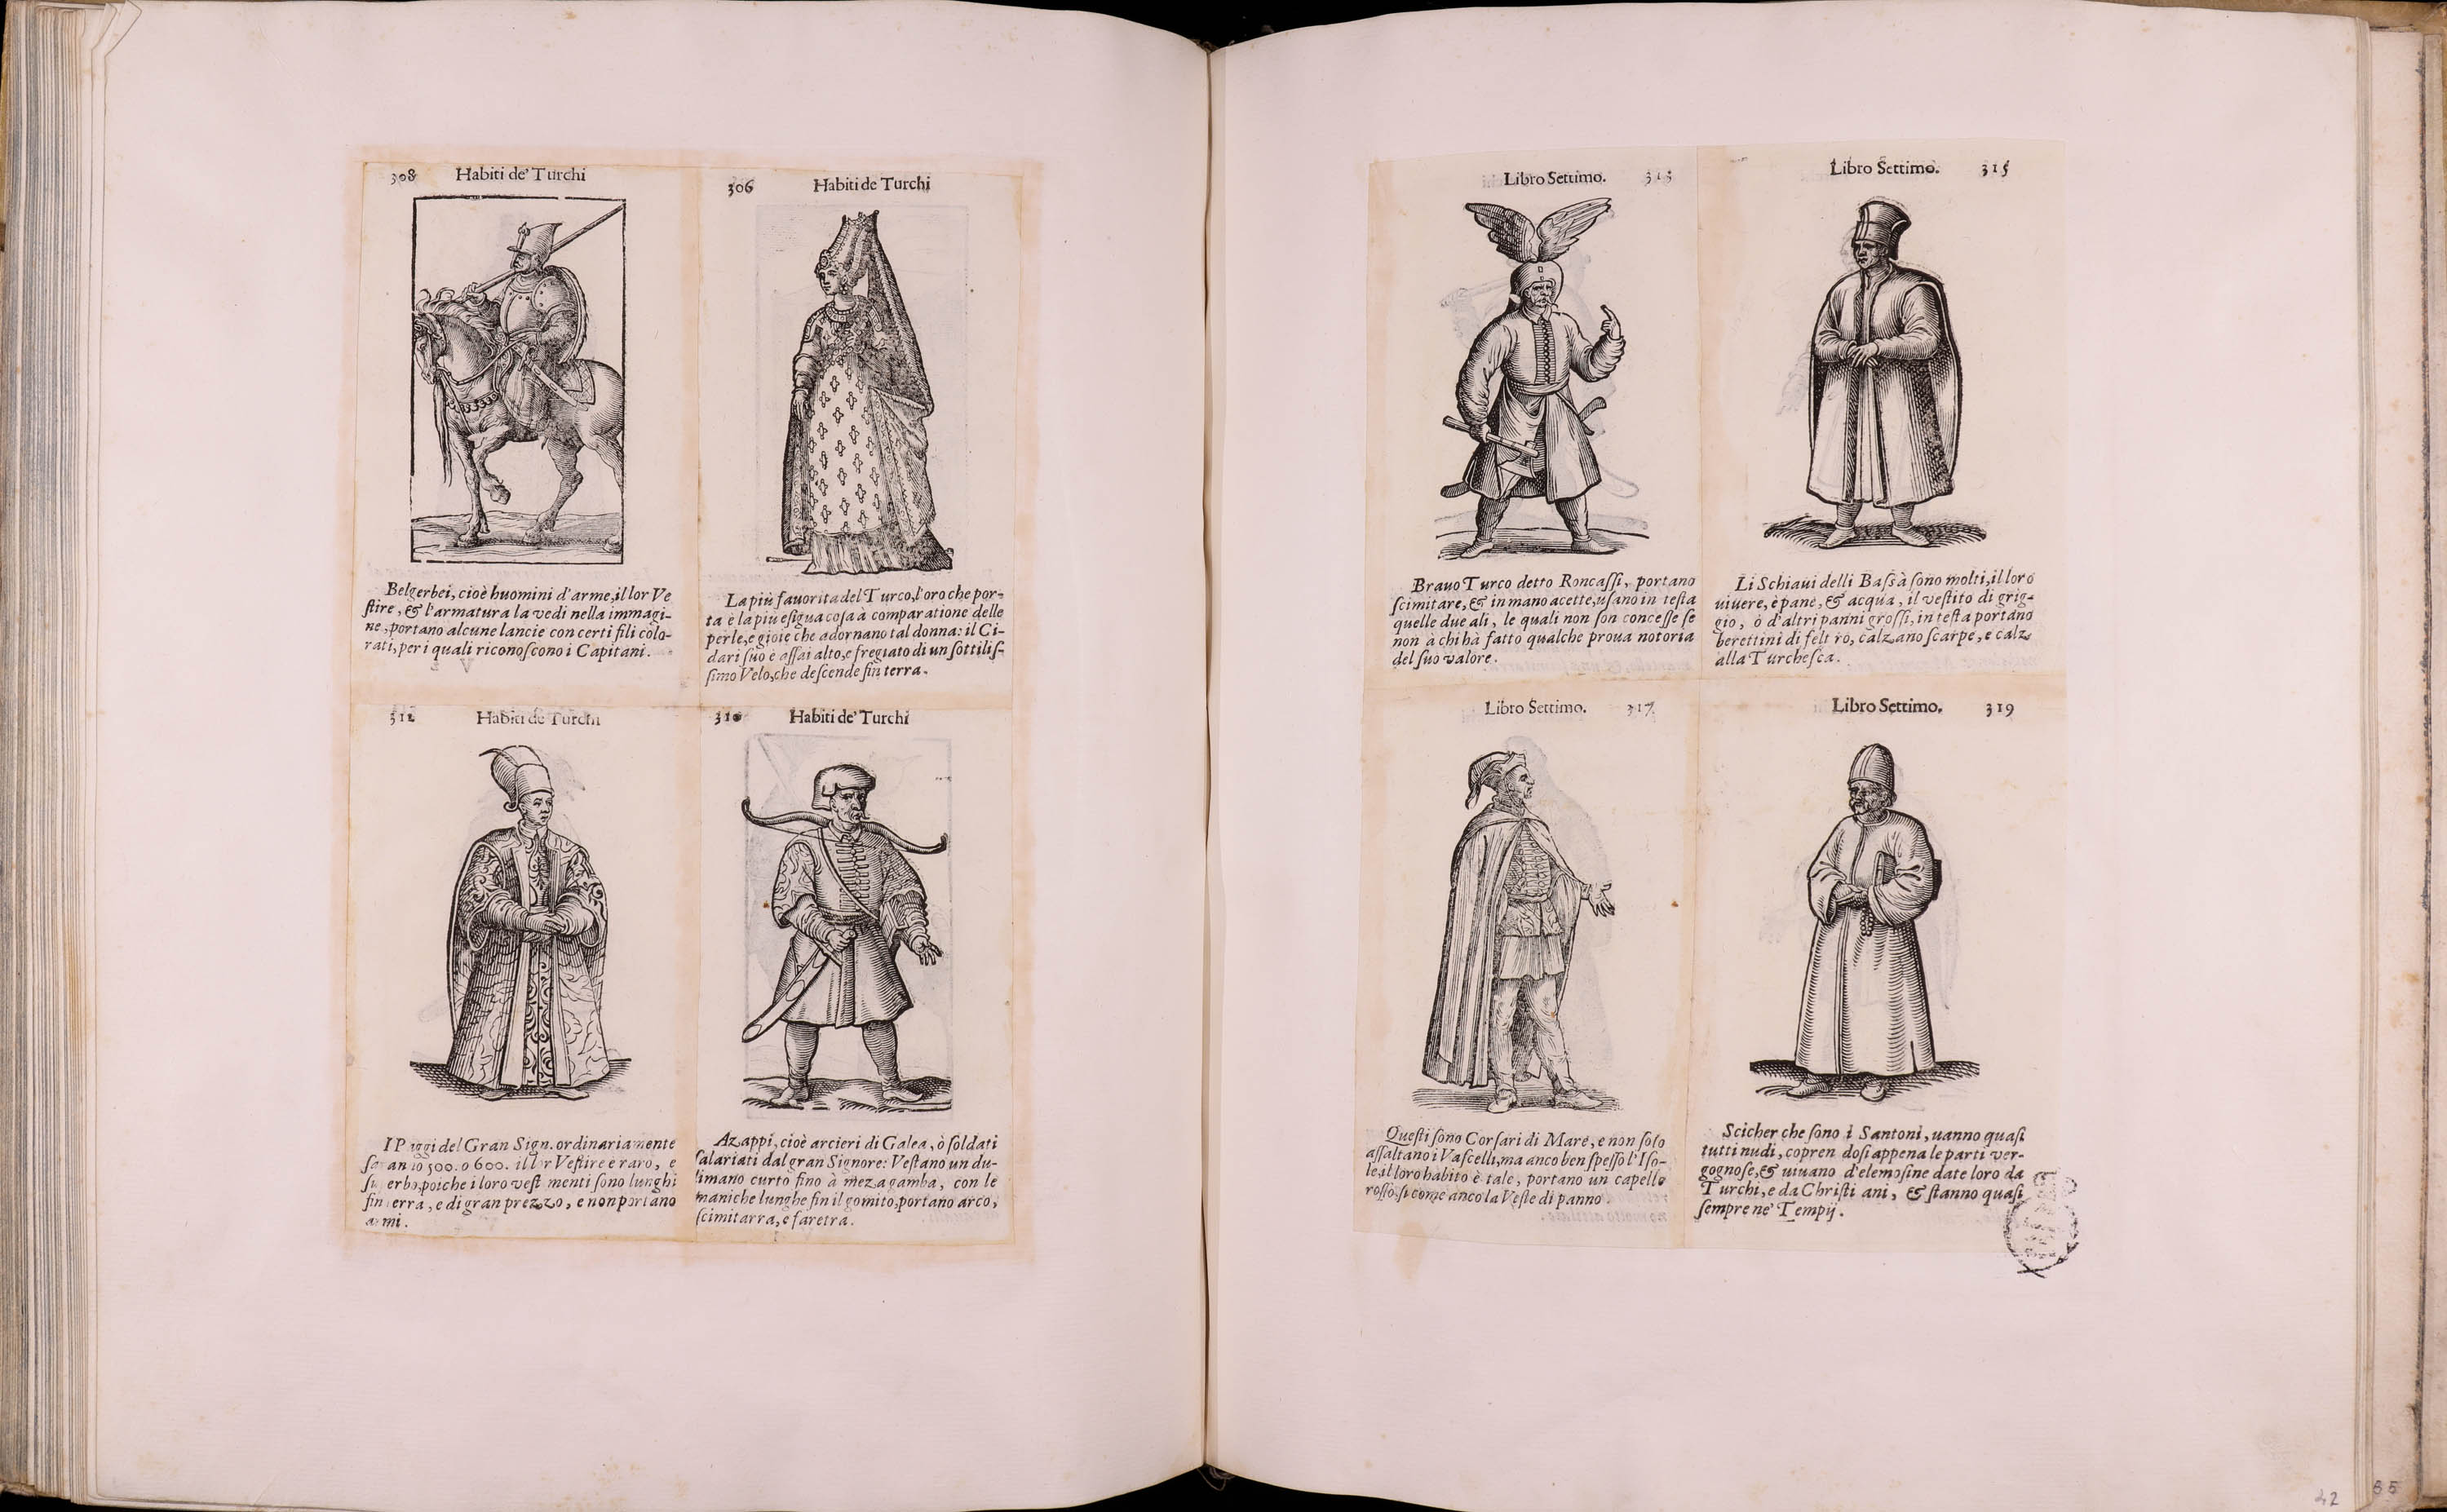 308 Habiti de' Turchi
Belgerbei, cioè huomini d'arme, il lor Ve
ſtire, & l'armatura la vedi nella immagi-
ne, portano alcune lancie con certi fili colo-
rati, per i quali riconoſcono i Capitani.
306 Habiti de Turchi
La più fauorita del Turco, l'oro che por-
ta è la più eſigua coſa à comparatione delle
perle, e gioie che adornano tal donna: il Ci-
dari ſuo è aſſai alto, e fregiato di un ſottiliſ-
ſimo Velo, che deſcende fin terra.
312 Habiti de Turchi
I Paggi del Gran Sign. ordinariamente
500. o 600. il lor Veſtire è raro, e
ſuperbo, poiche i loro veſtimenti ſono lunghi
fin terra, e di gran prezzo, e non portano
armi.
310 Habiti de' Turchi
Azappi, cioè arcieri di Galea, ò ſoldati
ſalariati dal gran Signore: Veſtano un du-
limano curto fino à meza gamba, con le
maniche lunghe fin il gomito, portano arco,
ſcimitarra, e faretra.
Libro Settimo. 313
Brauo Turco detto Roncaſſi, portano
ſcimitare, & in mano acette, uſano in teſta
quelle due ali, le quali non ſon conceſſe ſe
non à chi hà fatto qualche proua notoria
del ſuo valore.
Libro Settimo. 315
Li Schiaui delli Baſsà ſono molti, il loro
uiuere, è pane, & acqua, il veſtito di grig-
gio, ò d'altri panni groſſi, in teſta portano
berettini di feltro, calzano ſcarpe, e calz
alla Turcheſca.
Libro Settimo. 317.
Queſti ſono Corſari di Mare, e non ſolo
aſſaltano i Vaſcelli, ma anco ben ſpeſſo l'Iſo-
le, il loro habito è tale, portano un capello
roſſo, ſi come anco la Veſte di panno.
Libro Settimo. 319
Scicher che ſono i Santoni, uanno quaſi
tutti nudi, coprendoſi appena le parti ver-
gognoſe, & uiuano d'elemoſine date loro da
Turchi, e da Chriſtiani, & ſtanno quaſi
ſempre ne' Tempij.
42